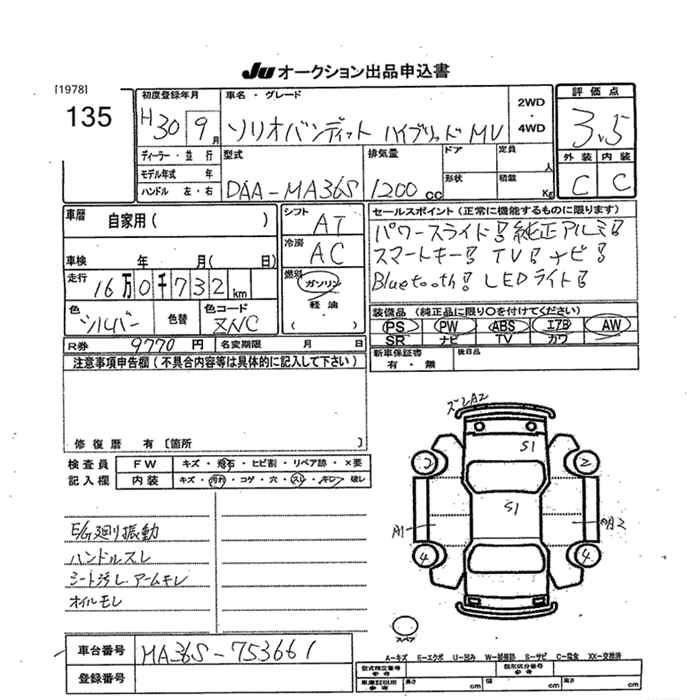 JU オークション出品申込書
[1978]
135
初度登録年月 車名・グレード 2WD・4WD 評価点
H30 9月 ソリオバンディット ハイブリッド MV 3.5
ディーラー・並行 型式 排気量 ドア 定員 人 外装 内装
モデル年式 年 形状 積載 Kg C C
ハンドル 左・右 DAA-MA36S 1200 cc
車暦 自家用( ) シフト AT セールスポイント(正常に機能するものに限ります)
冷房 AC パワースライド! 純正アルミ!
車検 年 月(日) スマートキー! TV! ナビ!
走行 16万0千732km 燃料 ガソリン Bluetooth! LEDライト!
軽油
( )
色 シルバー 色替 色コード ZNC 装備品(純正品に限り○を付けてください)
PS PW ABS エアB AW
SR ナビ TV カワ
R券 9770円 名変期限 月 日 新車保証書 有・無 後日品
注意事項申告欄(不具合内容等は具体的に記入して下さい)
修復暦 有〔箇所 〕
検査員 FW キズ・飛石・ヒビ割・リペア跡・×要
記入欄 内装 キズ・汚れ・コゲ・穴・スレ・キレ・破レ
E/G廻り振動
ハンドルスレ
シート汚レ アームモレ
オイルモレ
ズレA2
S1
2
S1
A1
A2
4 4
スペア
車台番号 MA36S-753661
登録番号
A-キズ E-エクボ U-凹み W-補修跡 S-サビ C-腐食 XX-交換済
型式指定番号 参考 類別区分番号 参考
車庫証明用 参考 長さ cm 幅 cm 高さ cm